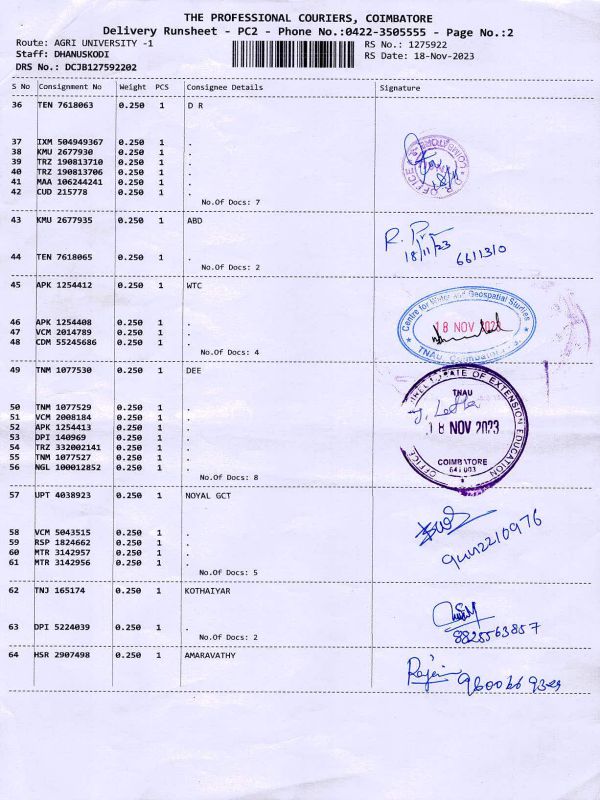 THE PROFESSIONAL COURIERS, COIMBATORE
Delivery Runsheet - PC2 - Phone No.:0422-3505555 - Page No.:2
Route: AGRI UNIVERSITY -1 RS No.: 1275922
Staff: DHANUSKODI RS Date: 18-Nov-2023
DRS No.: DCJB127592202
S No Consignment No Weight PCS Consignee Details Signature
36 TEN 7618063 0.250 1 D R
37 IXM 504949367 0.250 1 .
38 KMU 2677930 0.250 1 .
39 TRZ 190813710 0.250 1 .
40 TRZ 190813706 0.250 1 .
41 MAA 106244241 0.250 1 .
42 CUD 215778 0.250 1 .
No.Of Docs: 7
COIMBATORE
D.R. OFFICE
18/11
43 KMU 2677935 0.250 1 ABD
R.
18/11/23 6611310
44 TEN 7618065 0.250 1 .
No.Of Docs: 2
45 APK 1254412 0.250 1 WTC
46 APK 1254408 0.250 1 .
47 VCM 2014789 0.250 1 .
48 CDM 55245686 0.250 1 .
No.Of Docs: 4
Centre for Water and Geospatial Studies
18 NOV 2023
TNAU, Coimbatore-3.
49 TNM 1077530 0.250 1 DEE
50 TNM 1077529 0.250 1 .
51 VCM 2008184 0.250 1 .
52 APK 1254413 0.250 1 .
53 DPI 140969 0.250 1 .
54 TRZ 332002141 0.250 1 .
55 TNM 1077527 0.250 1 .
56 NGL 100012852 0.250 1 .
No.Of Docs: 8
OFFICE DIRECTORATE OF EXTENSION EDUCATION
TNAU
18 NOV 2023
COIMBATORE
641 003
57 UPT 4038923 0.250 1 NOYAL GCT
58 VCM 5043515 0.250 1 .
59 RSP 1824662 0.250 1 .
60 MTR 3142957 0.250 1 .
61 MTR 3142956 0.250 1 .
No.Of Docs: 5
62 TNJ 165174 0.250 1 KOTHAIYAR
63 DPI 5224039 0.250 1 .
No.Of Docs: 2
8825563857
64 HSR 2907498 0.250 1 AMARAVATHY